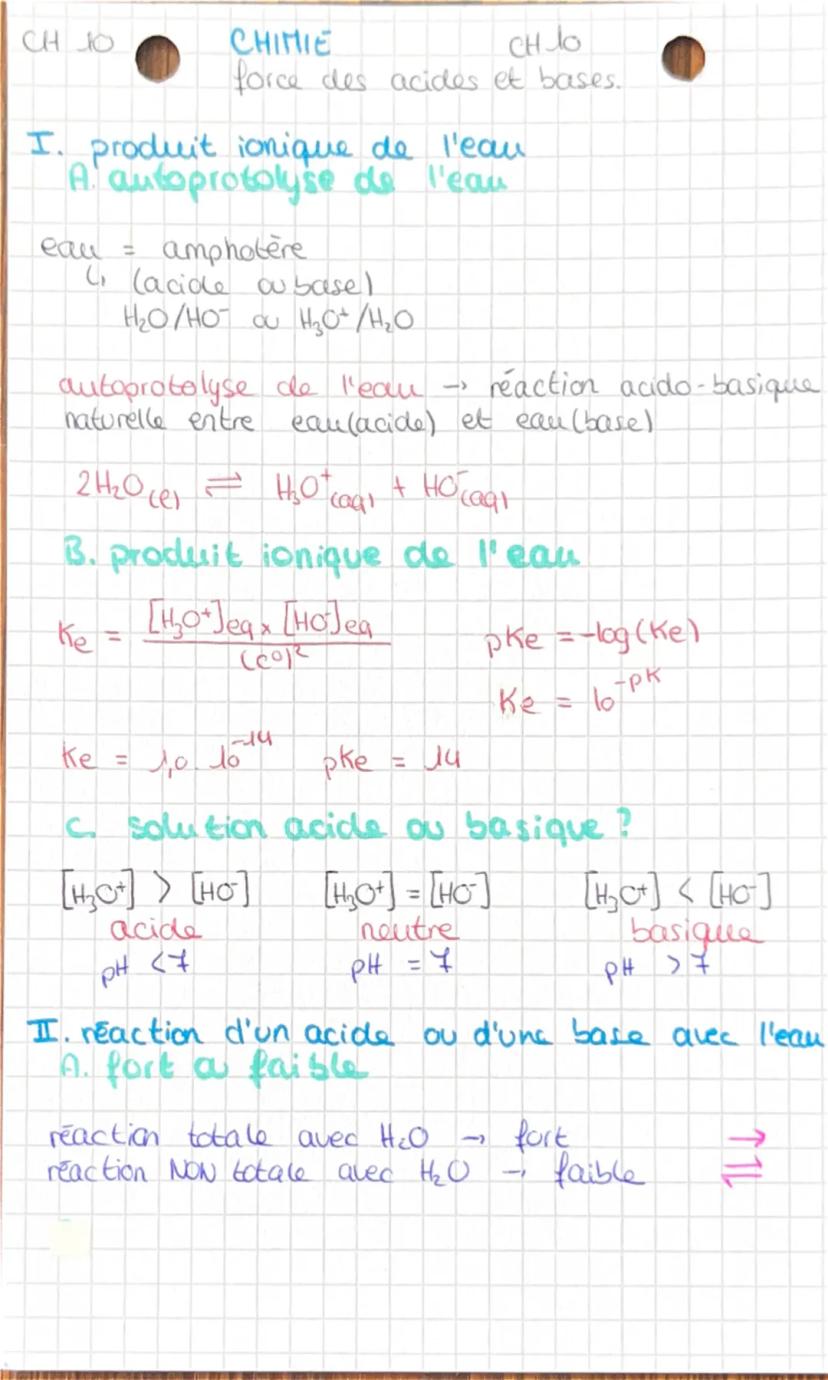 CH 10 CHIMIE CH 10
force des acides et bases.
I. produit ionique de l'eau
A. autoprotolyse de l'eau
eau = amphotère
↳ (acide ou base)
H₂O/HO⁻ ou H₃O⁺/H₂O
autoprotolyse de l'eau → réaction acido-basique
naturelle entre eau(acide) et eau(base)
2H₂O(l) ⇌ H₃O⁺(aq) + HO⁻(aq)
B. produit ionique de l'eau
Ke = [H₃O⁺]eq × [HO⁻]eq / (c⁰)² pKe = -log(Ke)
Ke = 10^-pK
Ke = 1,0.10⁻¹⁴ pKe = 14
C. solution acide ou basique ?
[H₃O⁺] > [HO⁻] [H₃O⁺] = [HO⁻] [H₃O⁺] < [HO⁻]
acide neutre basique
pH < 7 pH = 7 pH > 7
II. réaction d'un acide ou d'une base avec l'eau
A. fort ou faible
réaction totale avec H₂O → fort →
réaction NON totale avec H₂O → faible ⇌